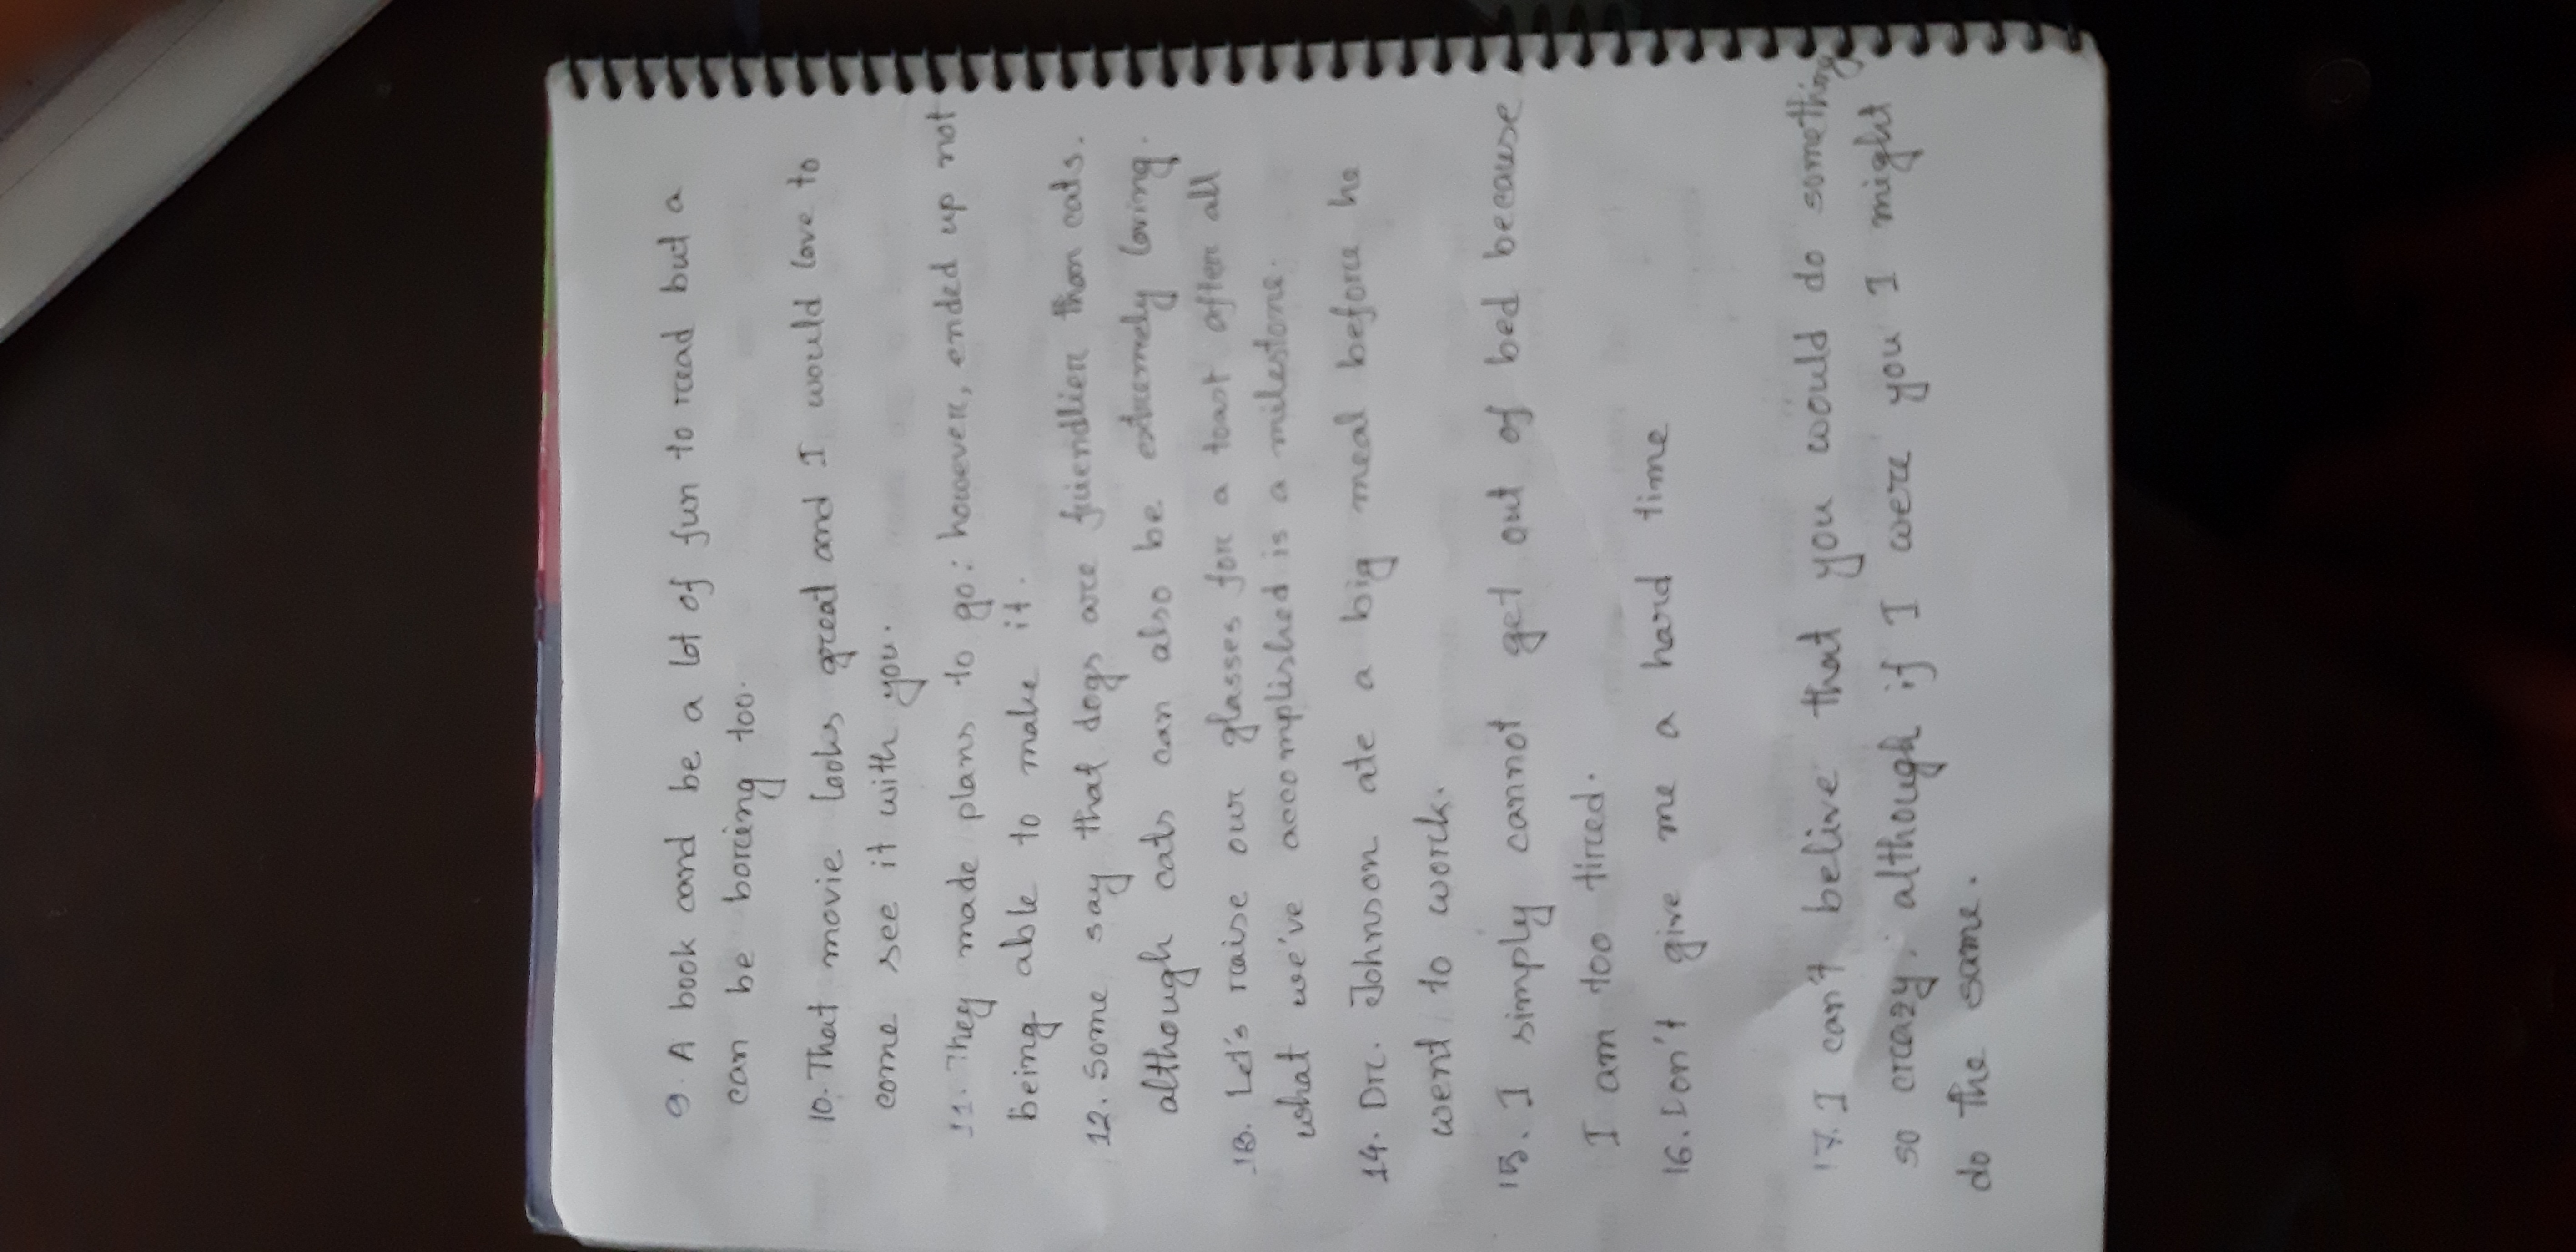 9. A book cand be a lot of fun to read but a
can be boring too.
10. That movie looks great and I would love to
come see it with you.
11. They made plans to go: however, ended up not
being able to make it.
12. Some say that dogs are friendlier than cats.
although cats can also be extremely loving.
13. Let's raise our glasses for a toast after all
what we've accomplished is a milestone.
14. Dr. Johnson ate a big meal before he
went to work.
15. I simply cannot get out of bed because
I am too tired.
16. Don't give me a hard time
17. I can't belive that you would do something
so crazy. although if I were you I might
do the same.